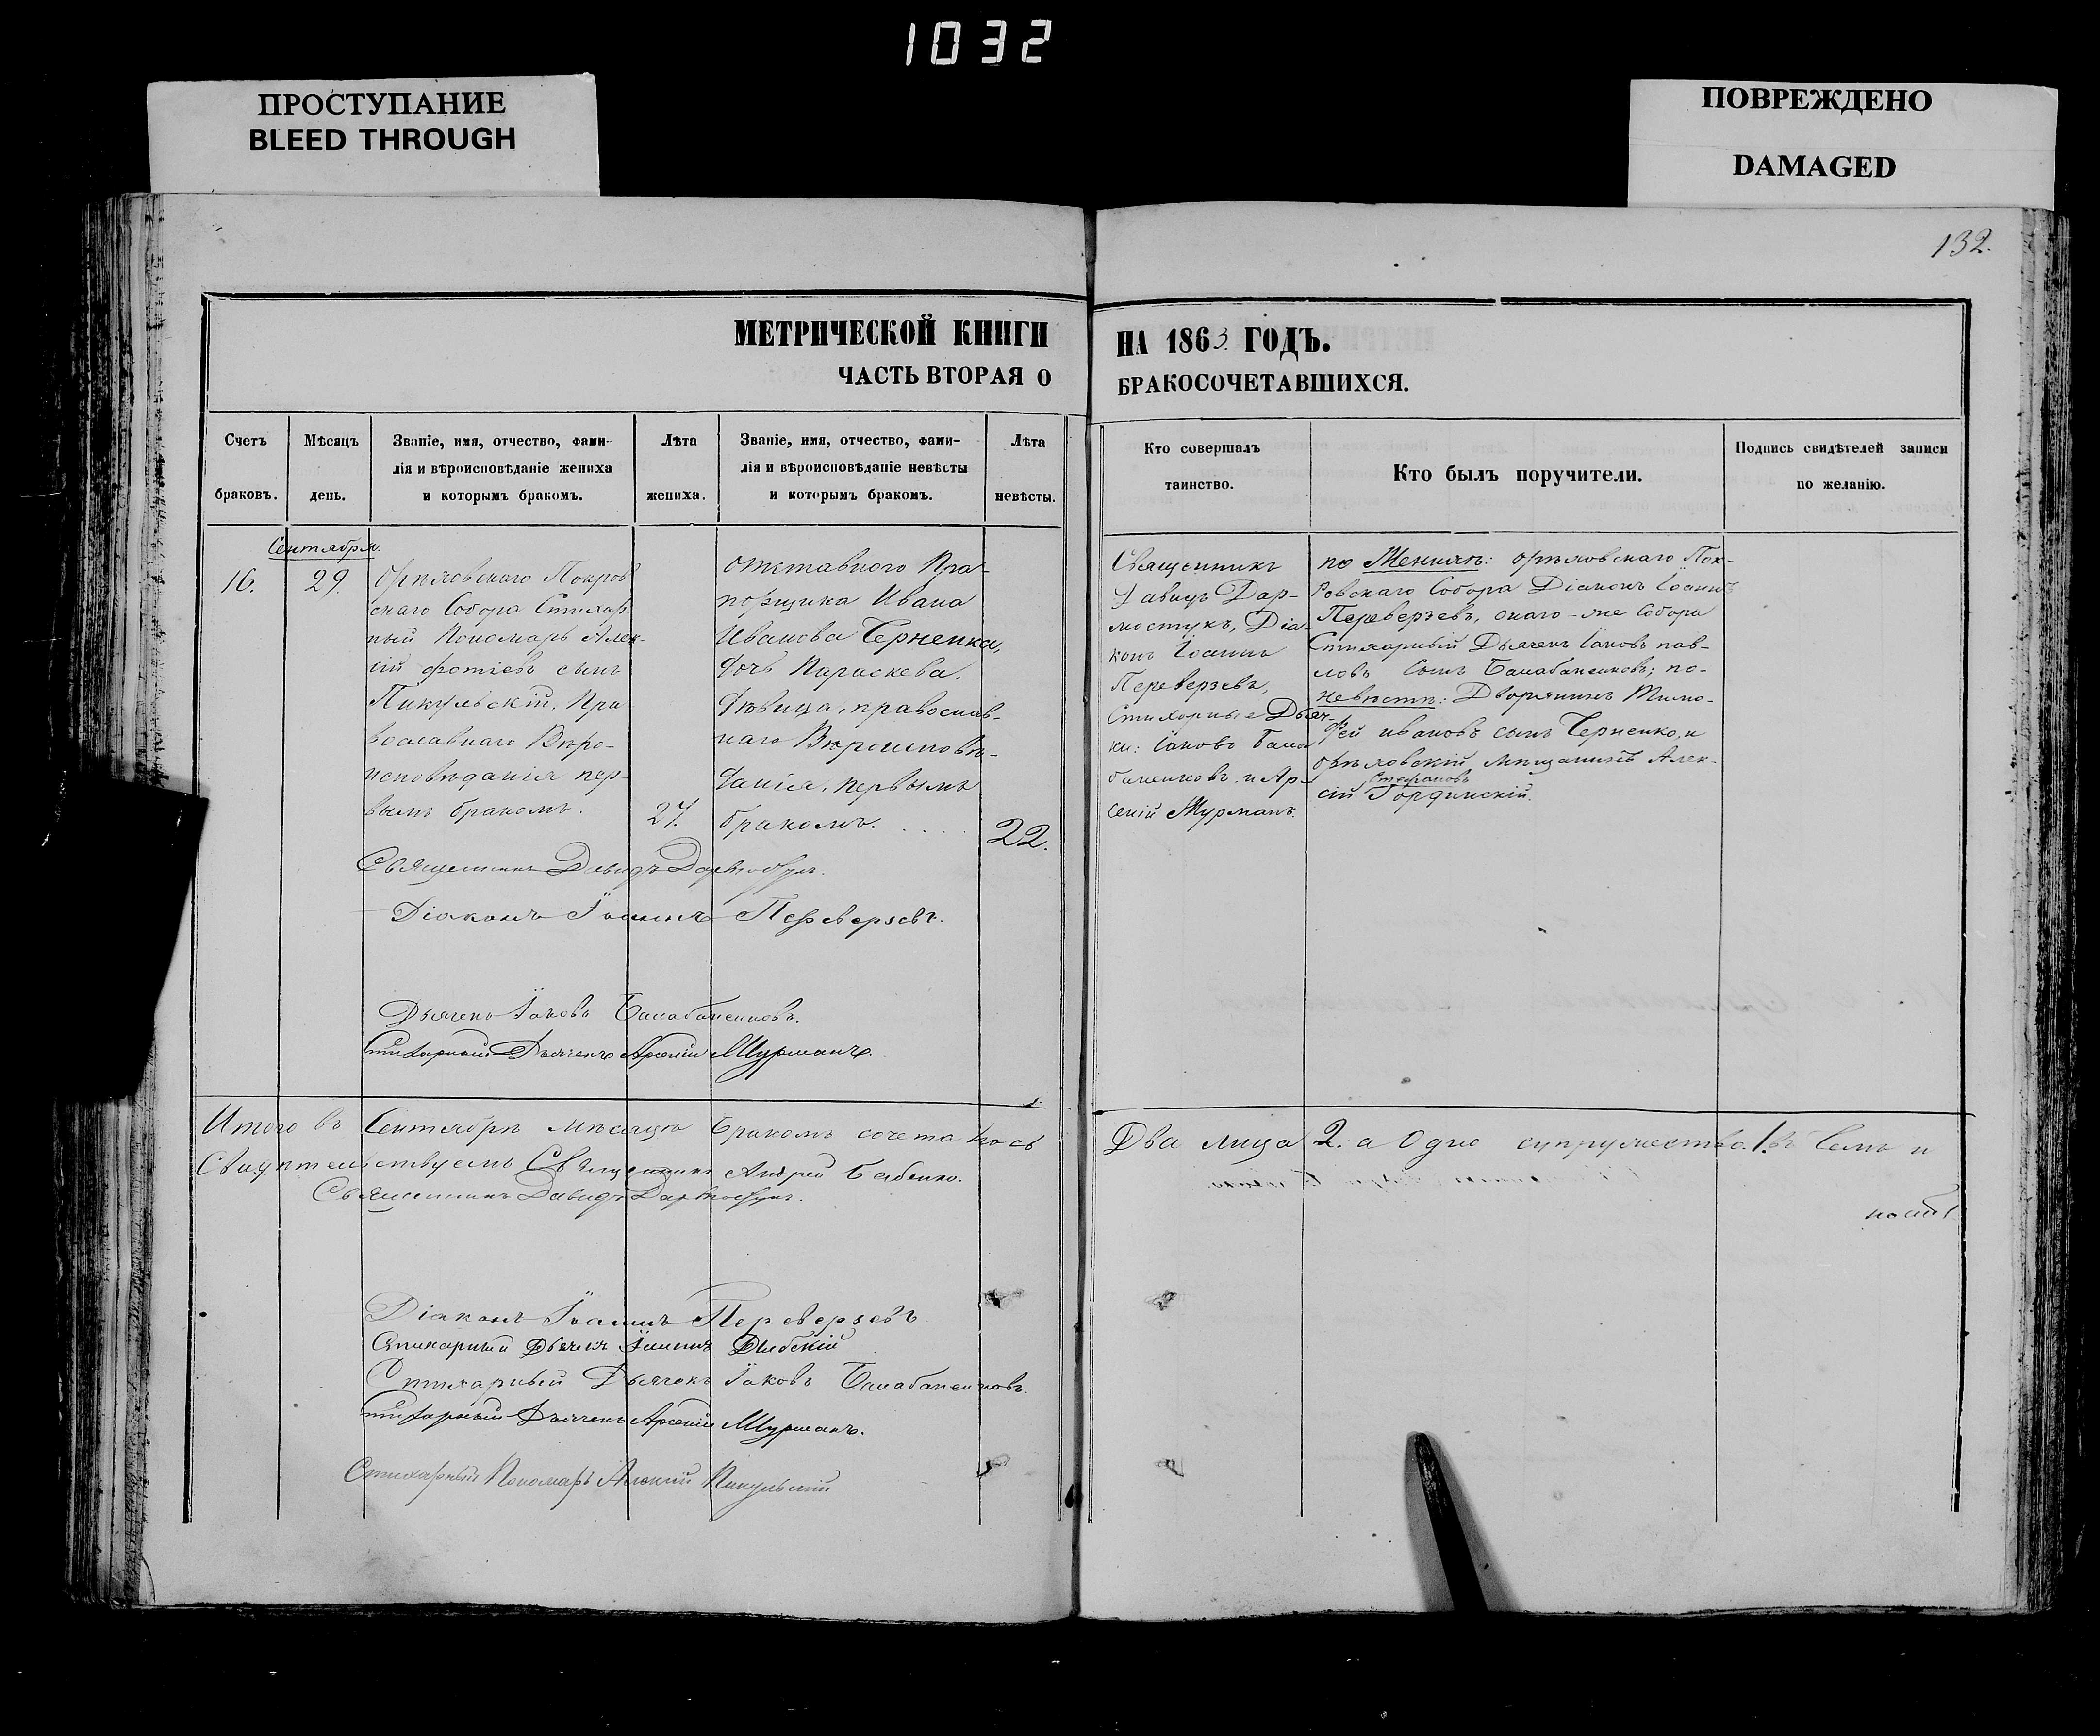 1032
ПРОСТУПАНИЕ
BLEED THROUGH
ПОВРЕЖДЕНО
DAMAGED
132.
МЕТРИЧЕСКОЙ КНИГИ
НА 1863 ГОДЪ.
ЧАСТЬ ВТОРАЯ О
БРАКОСОЧЕТАВШИХСЯ.
Счетъ
браковъ.
Мѣсяцъ
день.
Званіе, имя, отчество, фами-
лія и вѣроисповѣданіе жениха
и которымъ бракомъ.
Лѣта
жениха.
Званіе, имя, отчество, фами-
лія и вѣроисповѣданіе невѣсты
и которымъ бракомъ.
Лѣта
невѣсты.
Кто совершалъ
таинство.
Кто былъ поручители.
Подпись свидѣтелей записи
по желанію.
Сентября.
16.
29.
Орѣховскаго Покров
скаго Собора Стихар
ный Пономарь Алек-
сій Фотіевъ сынъ
Пикульскій, Пра
вославнаго Вѣро-
исповѣданія пер-
вымъ бракомъ.
27.
отставного Пра-
порщика Ивана
Иванова Черненка,
дочь Параскева,
дѣвица, православ-
наго Вѣроисповѣ-
данія, первымъ
бракомъ. . . . .
22.
Священникъ
Давидъ Дар-
мостукъ, Діа-
конъ Іоаннъ
Переверзевъ,
Стихарные Дьяч-
ки: Іаковъ Бала
баненковъ и Ар-
сеній Шурманъ.
по Женихѣ: Орѣховскаго Пок-
ровскаго Собора Діаконъ Іоаннъ
Переверзевъ, онаго-же Собора
Стихарный Дьячекъ Іаковъ Пав-
ловъ Сынъ Балабаненковъ; по-
невѣстѣ: Дворянинъ Тимо-
фей Ивановъ сынъ Черненко, и
орѣховскій мѣщанинъ Алек-
сій Стефановъ Гординскій.
Священникъ Давидъ
Діаконъ Іоаннъ Переверзевъ.
Дьячекъ Іаковъ Балабаненковъ.
Стихарный Дьячекъ Арсеній Шурманъ.
Итого въ Сентябрѣ мѣсяцѣ бракомъ сочеталось
Два лица 2. а Одно супружество. 1. въ Семъ и
Свидѣтельствуемъ Священникъ Андрей Бабенко.
Священникъ Давидъ
Діаконъ Іоаннъ Переверзевъ
Стихарный Дьячекъ Іоаннъ
Стихарный Дьячекъ Іаковъ Балабаненковъ.
Стихарный Дьячекъ Арсеній Шурманъ.
Стихарный Пономарь Алексій Пикульскій